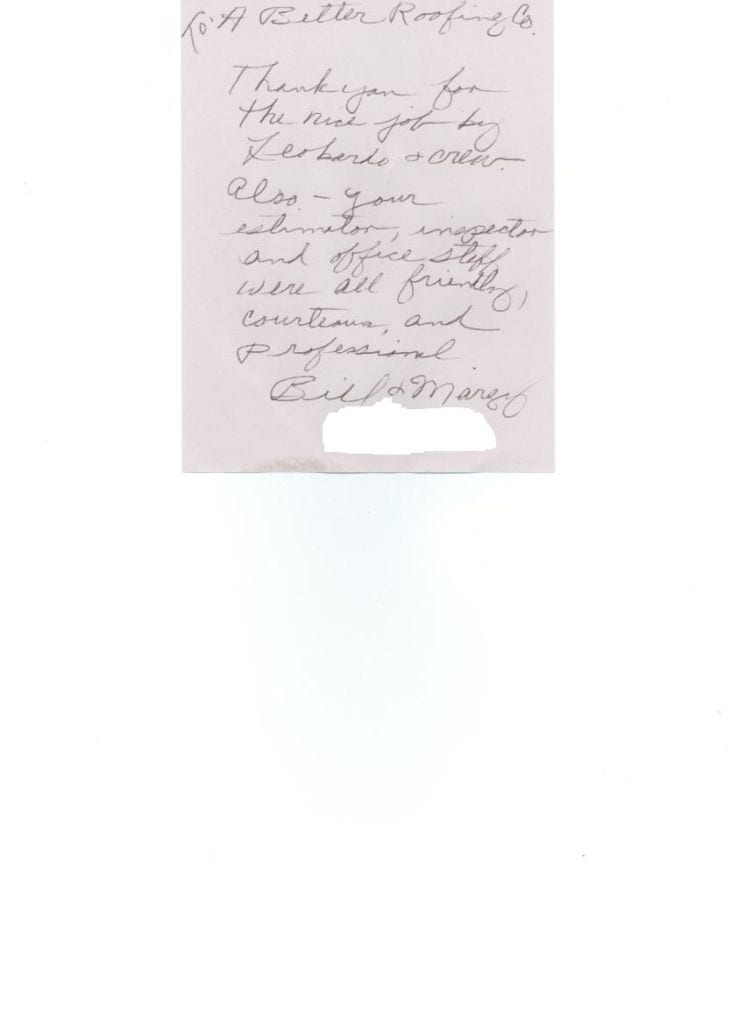 To: A Better Roofing Co.
Thank you for
the nice job by
Leobardo & crew.
Also - your
estimator, inspector
and office staff
were all friendly,
courteous, and
professional
Bill & Margy